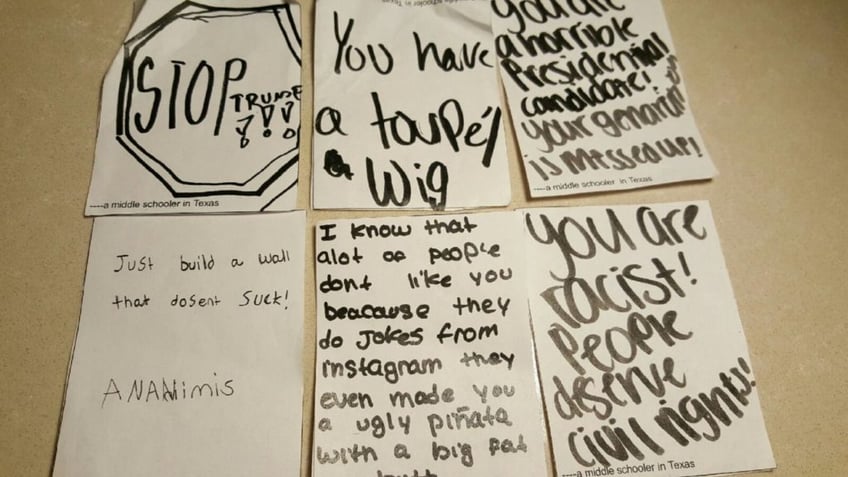 STOP
TRUMP
!!!
----a middle schooler in Texas
You have
a toupé/
Wig
you are
a horrible
Presidential
candidate!
your
is messed up!
----a middle schooler in Texas
Just build a wall
that dosent suck!
ANANimis
I know that
alot of people
dont like you
beacause they
do jokes from
instagram they
even made you
a ugly piñata
with a big fat
you are
racist!
People
deserve
civil rights!
----a middle schooler in Texas